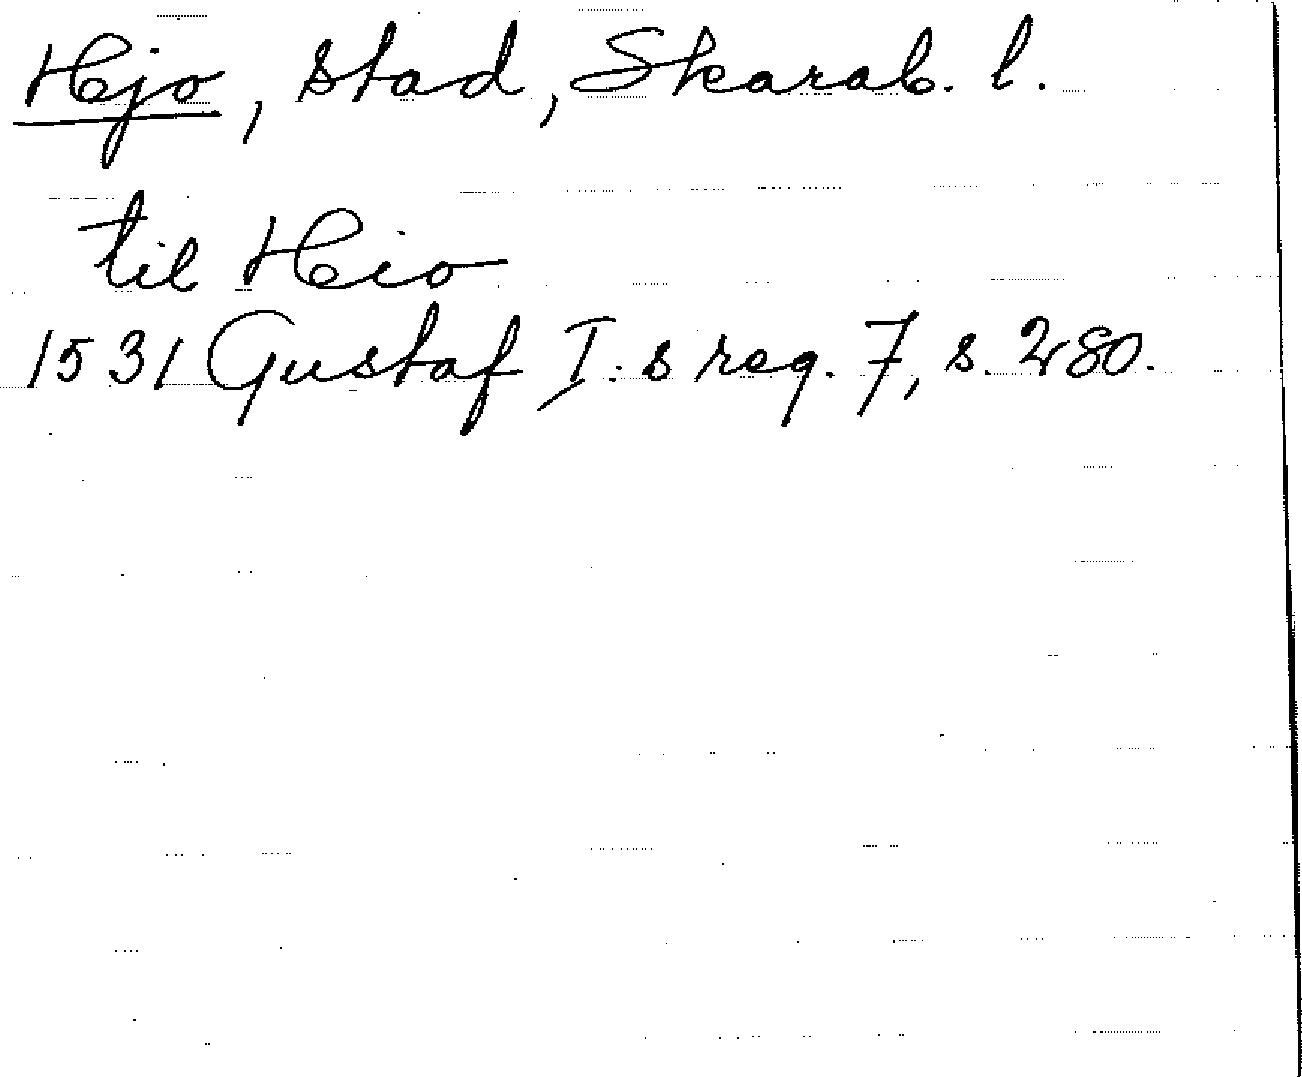 Hjo, stad, Skarab. l.
til Hio
1531 Gustaf I:s reg. 7, s. 280.